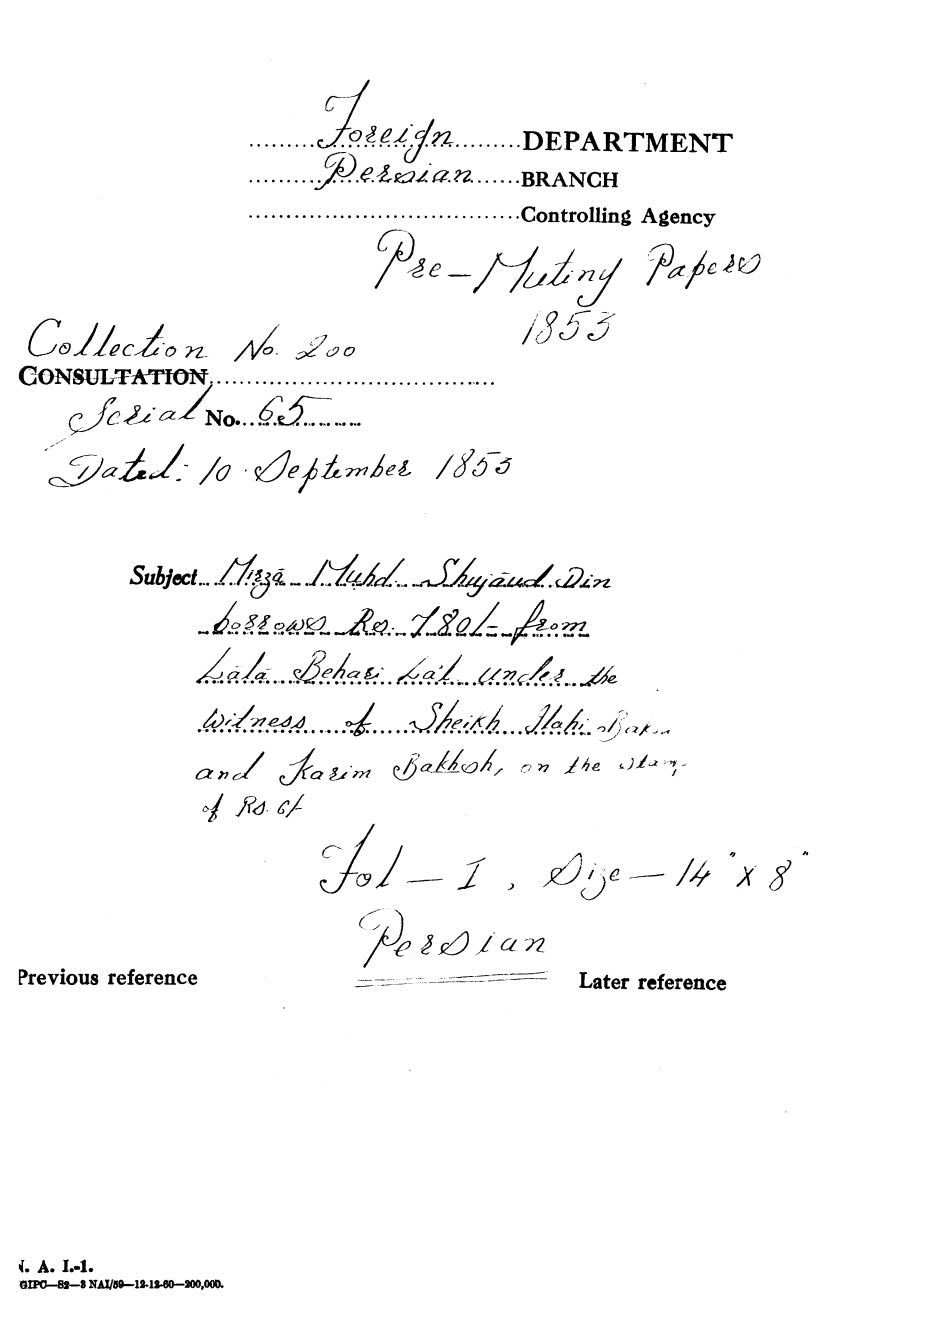 Foreign DEPARTMENT
Persian BRANCH
Controlling Agency
Pre-Mutiny Papers
1853
Collection No. 200
CONSULTATION
Serial No. 65
Dated: 10 September 1853
Subject Mirzā Muhd. Shujāud Din
borrows Rs. 780/- from
Lālā Behari Lāl under the
witness of Sheikh Ilahi
and Karim Bakhsh, on the
of Rs. 6/-
Fol - 1, Size - 14" x 8"
Persian
Previous reference
Later reference
N. A. I.-1.
GIPC—S2—3 NAI/59—12-12-60—200,000.